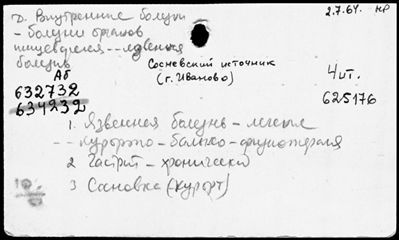 2. Внутренние болезни
2.7.64. НР
- болезни органов
пищеварения -- язвенная
болезнь
Сосневский источник
(г. Иваново)
Аб
4 шт.
632732
634232
625176
1. Язвенная болезнь - лечение
-- Курортно - бальнео - физиотерапия
2 Гастрит - хронический
3 Сосновка (курорт)